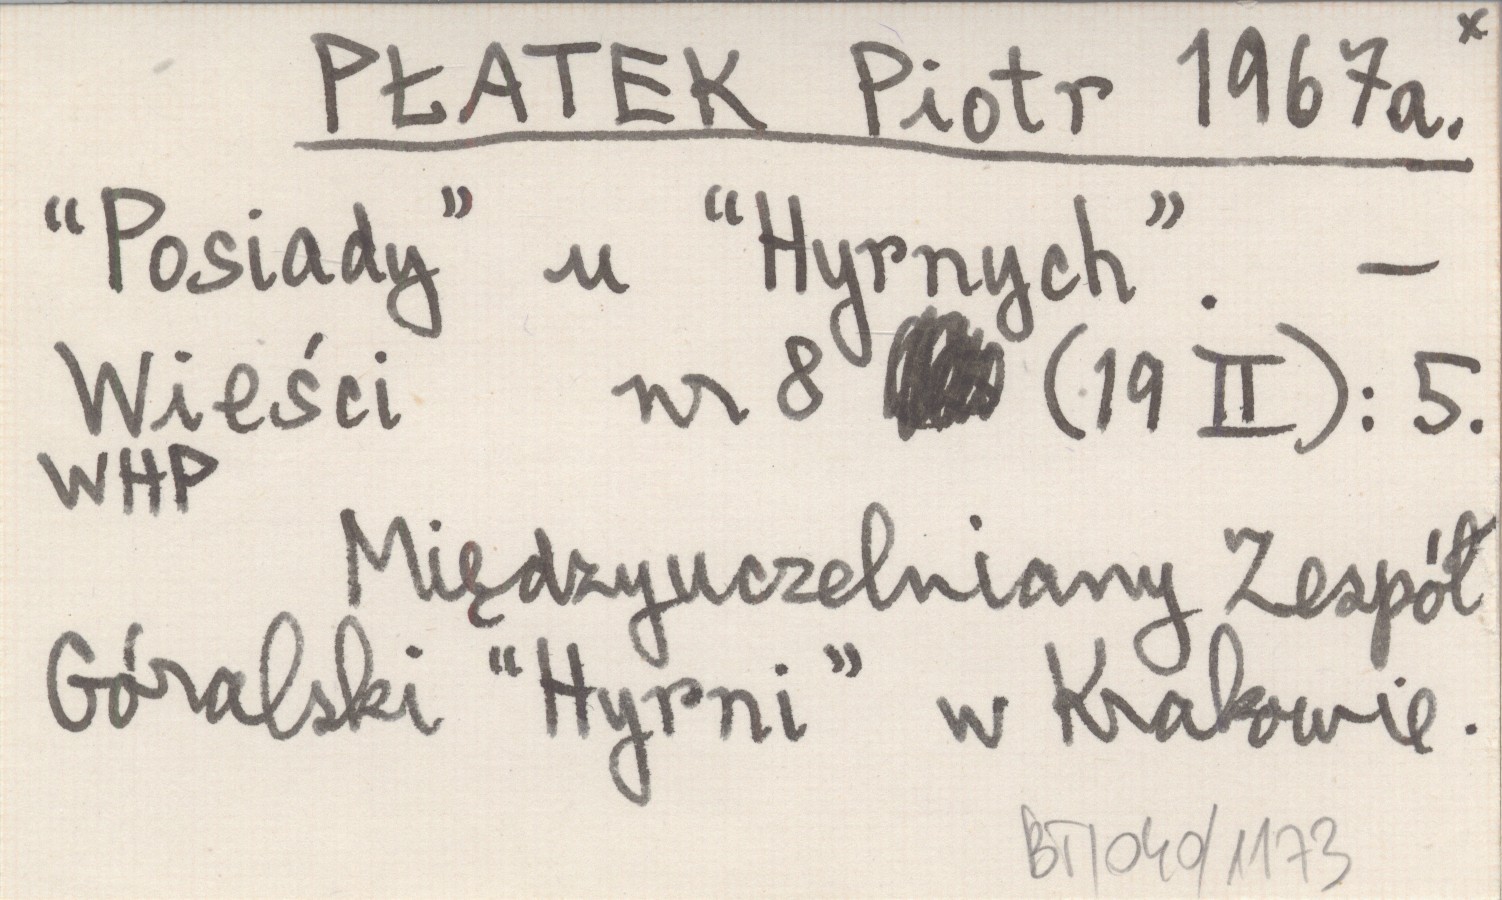 PŁATEK Piotr 1967a.x
"Posiady" u "Hyrnych". —
Wieści nr 8 (19 II): 5.
WHP
Międzyuczelniany Zespół
Góralski "Hyrni" w Krakowie.
BT/040/1173